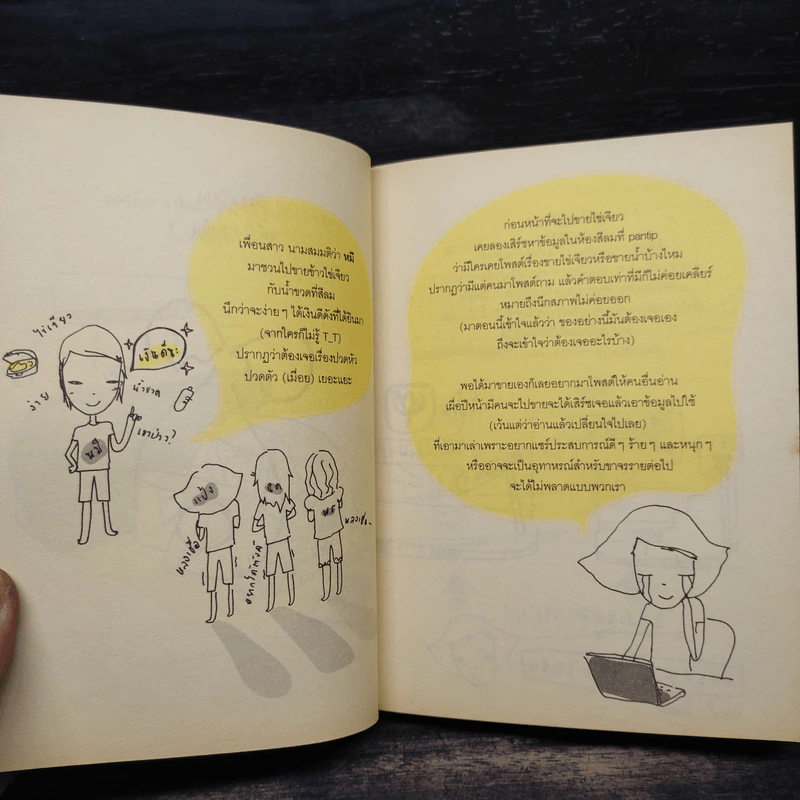 เพื่อนสาว นามสมมติว่า หมี
มาชวนไปขายข้าวไข่เจียว
กับน้ำขวดที่สีลม
นึกว่าจะง่ายๆ ได้เงินดีดังที่ได้ยินมา
(จากใครก็ไม่รู้ T_T)
ปรากฏว่าต้องเจอเรื่องปวดหัว
ปวดตัว (เมื่อย) เยอะแยะ
ไข่เจียว
เงินดีนะ
ง่าย
น้ำขวด
เอาป่าว?
หมี
แป้ง
หลงเชื่อ
อยากได้ตังค์
หลงเชื่อ
ก่อนหน้าที่จะไปขายไข่เจียว
เคยลองเสิร์ชหาข้อมูลในห้องสีลมที่ pantip
ว่ามีใครเคยโพสต์เรื่องขายไข่เจียวหรือขายน้ำบ้างไหม
ปรากฏว่ามีแต่คนมาโพสต์ถาม แล้วคำตอบเท่าที่มีก็ไม่ค่อยเคลียร์
หมายถึงนึกสภาพไม่ค่อยออก
(มาตอนนี้เข้าใจแล้วว่า ของอย่างนี้มันต้องเจอเอง
ถึงจะเข้าใจว่าต้องเจออะไรบ้าง)
พอได้มาขายเองก็เลยอยากมาโพสต์ให้คนอื่นอ่าน
เผื่อปีหน้ามีคนจะไปขายจะได้เสิร์ชเจอแล้วเอาข้อมูลไปใช้
(เว้นแต่ว่าอ่านแล้วเปลี่ยนใจไปเลย)
ที่เอามาเล่าเพราะอยากแชร์ประสบการณ์ดีๆ ร้ายๆ และหนุกๆ
หรืออาจจะเป็นอุทาหรณ์สำหรับขาจรรายต่อไป
จะได้ไม่พลาดแบบพวกเรา